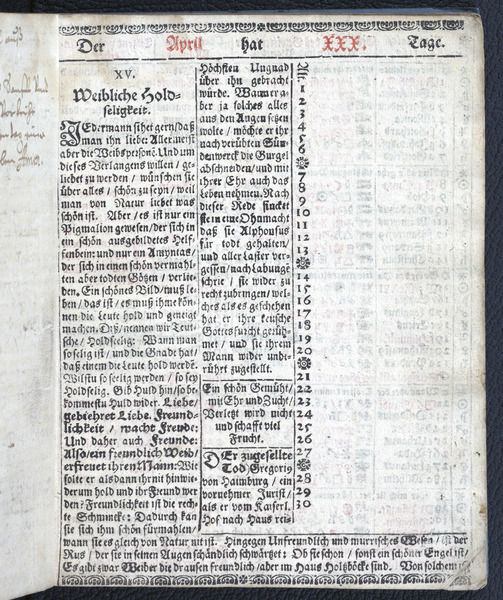 Der April hat XXX. Tage.
XV.
Weibliche Hold-
seligkeit.
JEdermann sihet gern/daß
man ihn liebe: Aller meist
aber die Weibspersonē. Und um
dieses Verlangens willen / ge-
liebet zu werden / wünschen sie
über alles / schön zu seyn / weil
man von Natur liebet was
schön ist. Aber / es ist nur ein
Pigmalion gewesen/der sich in
ein schön ausgebildetes Helf-
fenbein: und nur ein Amyntas/
der sich in einen schön vermahl-
ten aber todten Götzen / verlie-
ben. Ein schönes Bild/muß le-
ben / das ist / es muß ihme kön-
nen die Leute hold und geneigt
machen. Diß/nennen wir Teut-
sche / Holdselig: Wann man
so selig ist / und die Gnade hat/
daß einem die Leute hold werdē.
Wilstu so seelig werden / so sey
Holdselig. Gib Huld hin/so be-
kommestu Huld wider. Liebe/
gebiehret Liebe. Freund-
lichkeit / macht Freude:
Und daher auch Freunde:
Also/ein freundlich Weib/
erfreuet ihren Mann. Wie
solte er als dann ihr nit hinwie-
derum hold und ihr Freund wer
den? Freundlichkeit ist die rech-
te Schmincke: Dadurch kan
sie sich ihm schön fürmahlen/
Höchsten Ungnad
über ihn gebracht
würde. Wann er a-
ber ja solches alles
aus den Augen setzen
wolte / möchte er ihr
nach verübten Sün-
denwerck die Gurgel
abschneiden/und mit
ihrer Ehr auch das
Leben nehmen. Nach
dieser Rede sincket
sie in eine Ohnmacht
daß sie Alphonsus
für todt gehalten/
und aller Laster ver-
gessen/nach Labung
schrie / sie wider zu
recht zubringen/wel-
ches als es geschehen
hat er ihre keusche
Gottesfurcht gerüh-
met / und sie ihrem
Mann wider unbe-
rührt zugestellt.
Ein schön Gemüht/
mit Ehr und Zucht/
Verletzt wird nicht
und schafft viel
Frucht.
DEr zugesellte
Tod/Gregorij
von Haimburg / ein
vornehmer Jurist/
als er vom Kaiserl.
Hof nach Haus rei-
1
2
3
4
5
6
7
8
9
10
11
12
13
14
15
16
17
18
19
20
21
22
23
24
25
26
27
28
29
30
wann sie es gleich von Natur nit ist. Hingegen Unfreundlich und murrisches Wesen / ist der
Rus / der sie in seinen Augen schändlich schwärtzet: Ob sie schon / sonst ein schöner Engel ist/
Es gibt zwar Weiber die drausen freundlich / aber im Haus Holtzböcke sind. Von solchem ist